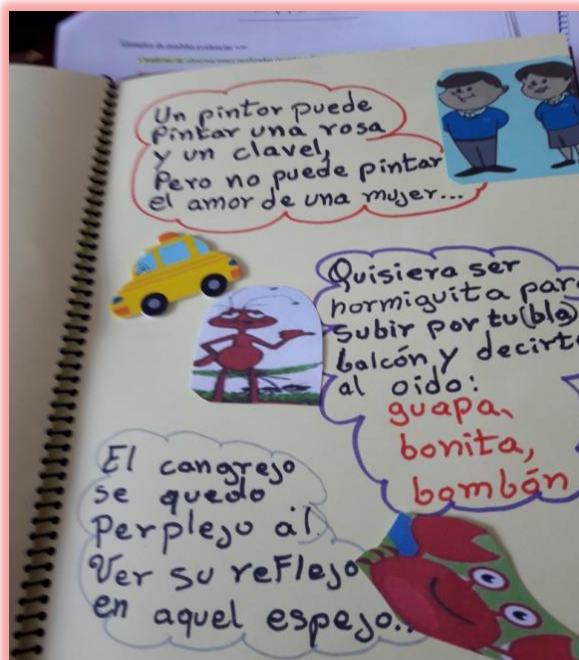 Un pintor puede
pintar una rosa
y un clavel,
Pero no puede pintar
el amor de una mujer...
Quisiera ser
hormiguita par
subir por tu (bla)
balcón y decirt
al oído:
guapa,
bonita,
bombón
El cangrejo
se quedo
Perplejo al
Ver su reflejo
en aquel espejo..